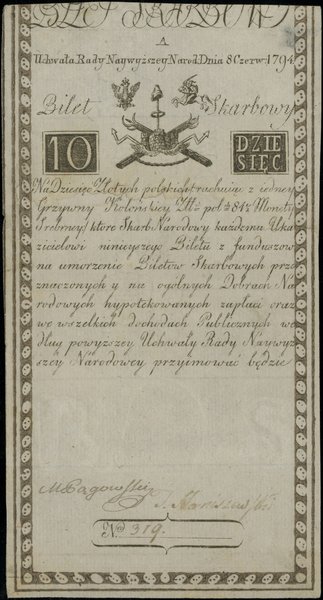 BILET SKARBOWY
A
Uchwała Rady Naywyższey Narod. Dnia 8 Czerw: 1794
Bilet Skarbowy
10 DZIE
SIĘĆ
Na Dziesięć Złotych polskich rachuiąc z iedney
Grzywny Kolońskiey Złł: pol: 84½ Monety
Srebrney, które Skarb Narodowy każdemu Uka
zicielowi ninieyszego Biletu z funduszow
na umorzenie Biletow Skarbowych prze
znaczonych y na ogolnych Dobrach Na
rodowych hypotekowanych zapłaci oraz
we wszelkich dochodach Publicznych we
dług powyższey Uchwały Rady Naywyż
szey Narodowey przyimować będzie
M Pągowski
J. Staniszewski
No 319.